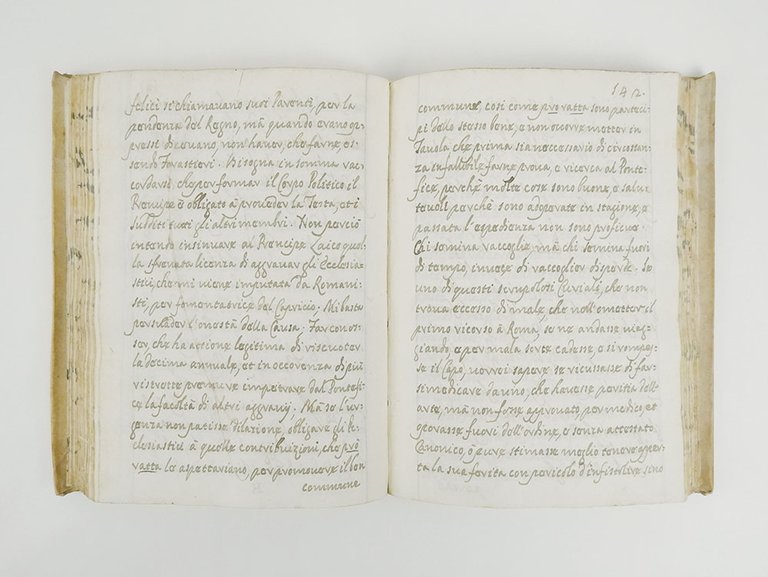 felici si chiamavano suoi Parenti, per la
pendenza del Regno, mà quando erano op-
pressi diceuano non hauer, che farne, es-
sendo Forastieri. Bisogna in somma rac-
cordarsi che per formar il Corpo Politico, il
Prencipe è obligato à proueder la Testa, et i
sudditi tutti gli altri membri. Non perciò
intendo insinuare al Prencipe Laico quel-
la sfrenata licenza di aggrauar gli Ecclesia-
stici, che mi viene imputata da Romani-
sti, per fomentatrice del Capricio; Mi basta
persuadere l'onestà della Causa; Far conos-
cer, che ha attione legitima di riscuoter
la decima annuale, et in occorenza di più
riseruate premure impetrare dal Pontefi-
ce la facoltà di altri aggrauij; Mà se l'ur-
genza non patisse dilatione, obligare gli Ec-
clesiastici à quelle contribuizioni, che pro
ratta le aspettaviano, per promouere il ben
commune
142.
commune, così come pro ratta sono parteci-
pi dello stesso bene, e non occorre metter in
Tauola che prima sia necessario di circostan-
za infallibile farne proua, e ricerca al Ponte-
fice, perche molte cose sono buone e salut
teuoli perche sono adoprate in stagione, e
passata l'espedienza non sono proficue.
Chi semina raccoglie, mà chi semina fuori
di tempo, inuece di raccoglier disperde. Se
uno di questi scrupolosi Curiali, che non
troua eccesso di male che nell'ometter il
primo ricorso à Roma, se ne andasse viag-
giando, e per mala sorte cadesse, e si rompes-
se il Capo, vorrei sapere se ricusasse di far-
si medicare da uno, che hauesse peritia dell'
arte, mà non forse approuato, per medico, et
operasse fuori dell'ordine, e senza attestato
Canonico, ò pure stimasse meglio tenere aper-
ta la sua ferita con pericolo d'infistolire sino